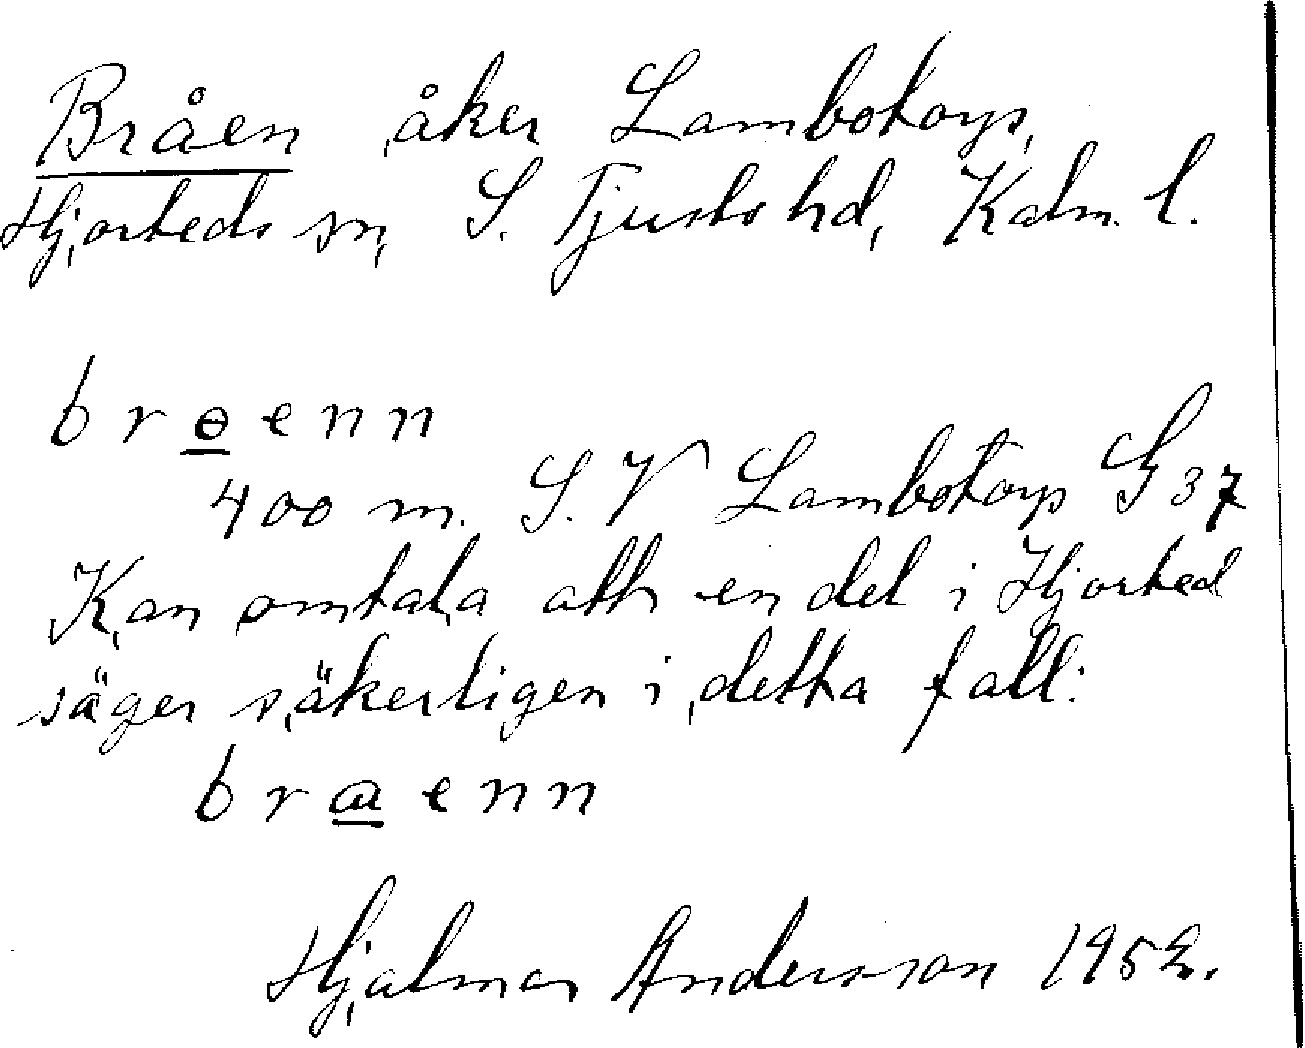 Bråen åker Lambotorp,
Hjorteds sn, S. Tjusts hd, Kalm. l.
b r ɵ e n n
400 m. S.V Lambotorp G 37
Kan omtala att en del i Hjorted
säger säkerligen i detta fall:
b r a e n n
Hjalmar Andersson 1952.